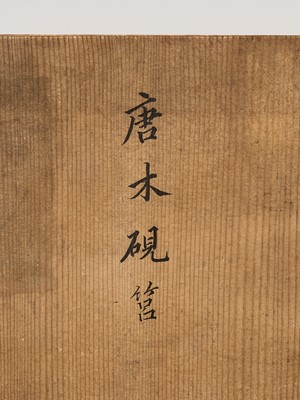 唐木硯筥